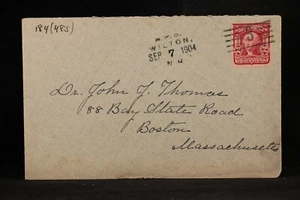 184(485)
R.F.D.
WILTON,
SEP 7 1904
N.H.
Dr. John F. Thomas
88 Bay State Road
Boston
Massachusetts